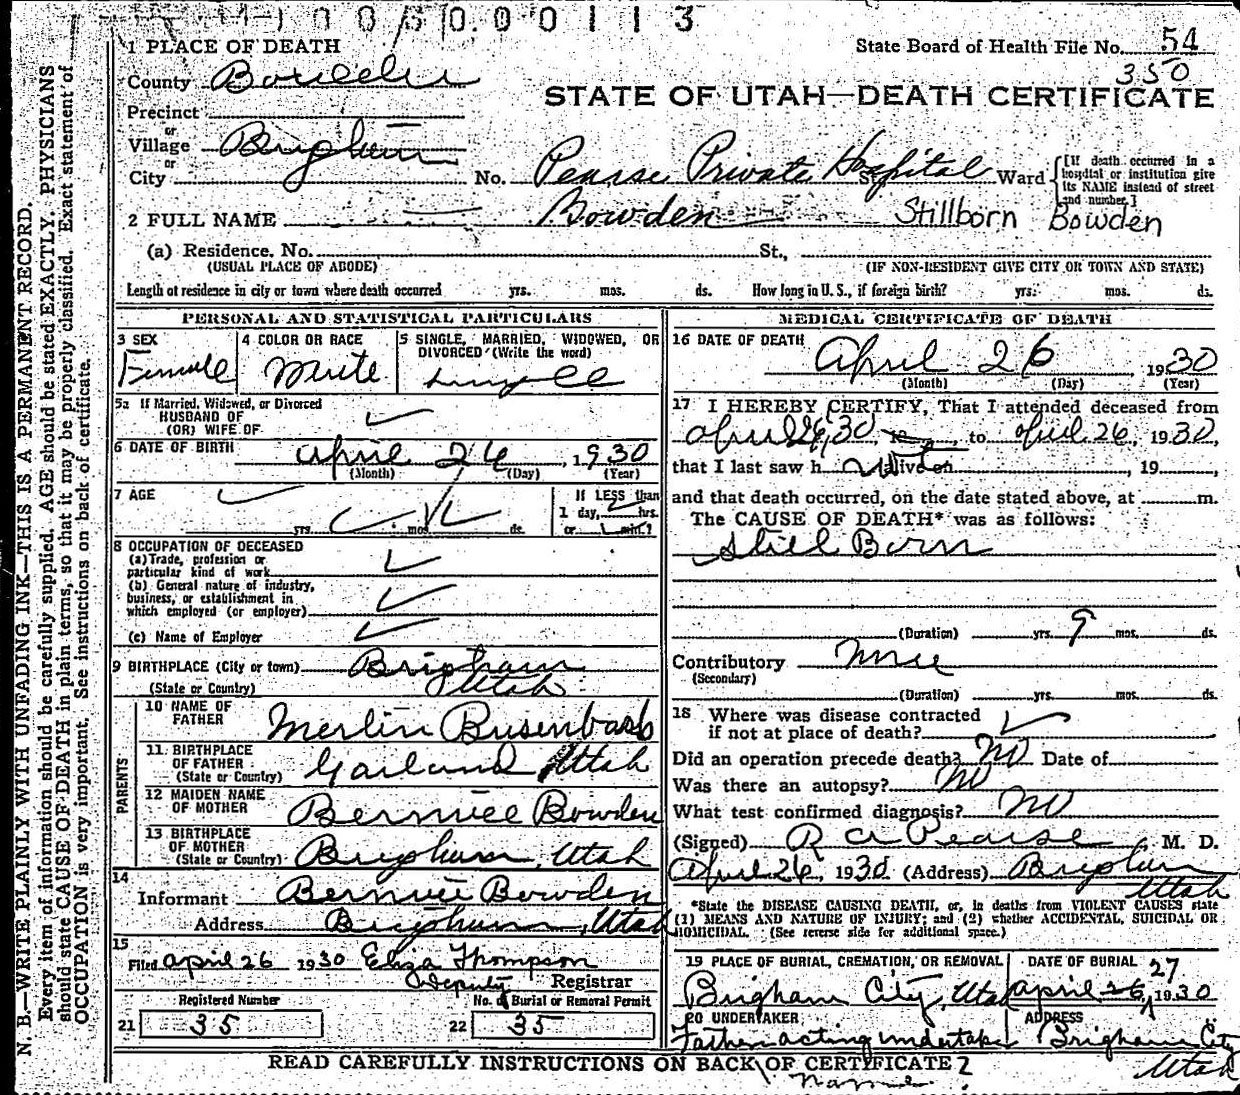 0 0 0 1 1 3
1 PLACE OF DEATH
State Board of Health File No. 54
350
County Boxelder
STATE OF UTAH—DEATH CERTIFICATE
Precinct
or
Village Brigham
or
City No. Pearse Private Hospital St. Ward
[If death occurred in a
hospital or institution give
its NAME instead of street
and number.]
2 FULL NAME Bowden Stillborn Bowden
(a) Residence. No. St.,
(USUAL PLACE OF ABODE) (IF NON-RESIDENT GIVE CITY OR TOWN AND STATE)
Length of residence in city or town where death occurred yrs. mos. ds. How long in U. S., if foreign birth? yrs. mos. ds.
PERSONAL AND STATISTICAL PARTICULARS
3 SEX
Female
4 COLOR OR RACE
White
5 SINGLE, MARRIED, WIDOWED, OR
DIVORCED (Write the word)
Single
5a If Married, Widowed, or Divorced
HUSBAND OF
(OR) WIFE OF
6 DATE OF BIRTH April 26, 1930
(Month) (Day) (Year)
7 AGE
yrs. mos. ds.
If LESS than
1 day, hrs.
or min.?
8 OCCUPATION OF DECEASED
(a) Trade, profession or
particular kind of work
(b) General nature of industry,
business, or establishment in
which employed (or employer)
(c) Name of Employer
9 BIRTHPLACE (City or town) Brigham
(State or Country) Utah
PARENTS
10 NAME OF
FATHER Merlin Busenbark
11 BIRTHPLACE
OF FATHER
(State or Country) Garland Utah
12 MAIDEN NAME
OF MOTHER Berniece Bowden
13 BIRTHPLACE
OF MOTHER
(State or Country) Brigham, Utah
14
Informant Berniece Bowden
Address Brigham, Utah
15
Filed April 26 1930 Eliza Thompson
Deputy Registrar
Registered Number No. of Burial or Removal Permit
21 35 22 35
MEDICAL CERTIFICATE OF DEATH
16 DATE OF DEATH
April 26 1930
(Month) (Day) (Year)
17 I HEREBY CERTIFY, That I attended deceased from
April 26, 30, 19, to April 26, 1930,
that I last saw h alive on , 19 ,
and that death occurred, on the date stated above, at m.
The CAUSE OF DEATH* was as follows:
Still Born
(Duration) yrs. 9 mos. ds.
Contributory None
(Secondary)
(Duration) yrs. mos. ds.
18 Where was disease contracted
if not at place of death?
Did an operation precede death? No Date of
Was there an autopsy? No
What test confirmed diagnosis? No
(Signed) R A Pearse, M. D.
April 26, 1930. (Address) Brigham
Utah
*State the DISEASE CAUSING DEATH, or, in deaths from VIOLENT CAUSES state
(1) MEANS AND NATURE OF INJURY; and (2) whether ACCIDENTAL, SUICIDAL OR
HOMICIDAL. (See reverse side for additional space.)
19 PLACE OF BURIAL, CREMATION, OR REMOVAL
Brigham City, Utah
DATE OF BURIAL 27
April 26, 1930
20 UNDERTAKER
Father acting undertaker
ADDRESS
Brigham City
Utah
READ CAREFULLY INSTRUCTIONS ON BACK OF CERTIFICATE ?
name
N. B.—WRITE PLAINLY WITH UNFADING INK—THIS IS A PERMANENT RECORD.
Every item of information should be carefully supplied. AGE should be stated EXACTLY. PHYSICIANS
should state CAUSE OF DEATH in plain terms, so that it may be properly classified. Exact statement of
OCCUPATION is very important. See instructions on back of certificate.